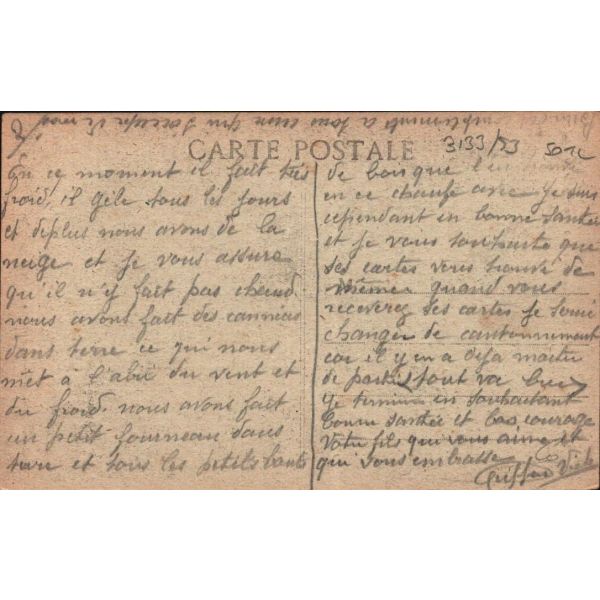 compliments à tous ceux qui s'occupe de moi
CARTE POSTALE
3133/23 50rc
2/
En ce moment il fait très
froid, il gèle tous les jours
et deplus nous avons de la
neige et je vous assure
qu'il n'y fait pas chaud
nous avons fait des
dans terre ce qui nous
mèt à l'abri du vent et
du froid. nous avons fait
un petit fourneau dans
terre et tous les petits bouts
de bois que l'on
en ce chaufe avec je suis
cependant en bonne santée
et je vous souhaite que
ses cartes vous trouve de
même quand vous
receverez ses cartes je serai
changer de cantonnement
car il y en a déja moitier
de partis tout va bien
je termine en souhaitant
bonne santée et bon courage
votre fils qui vous aime et
qui vous embrasse